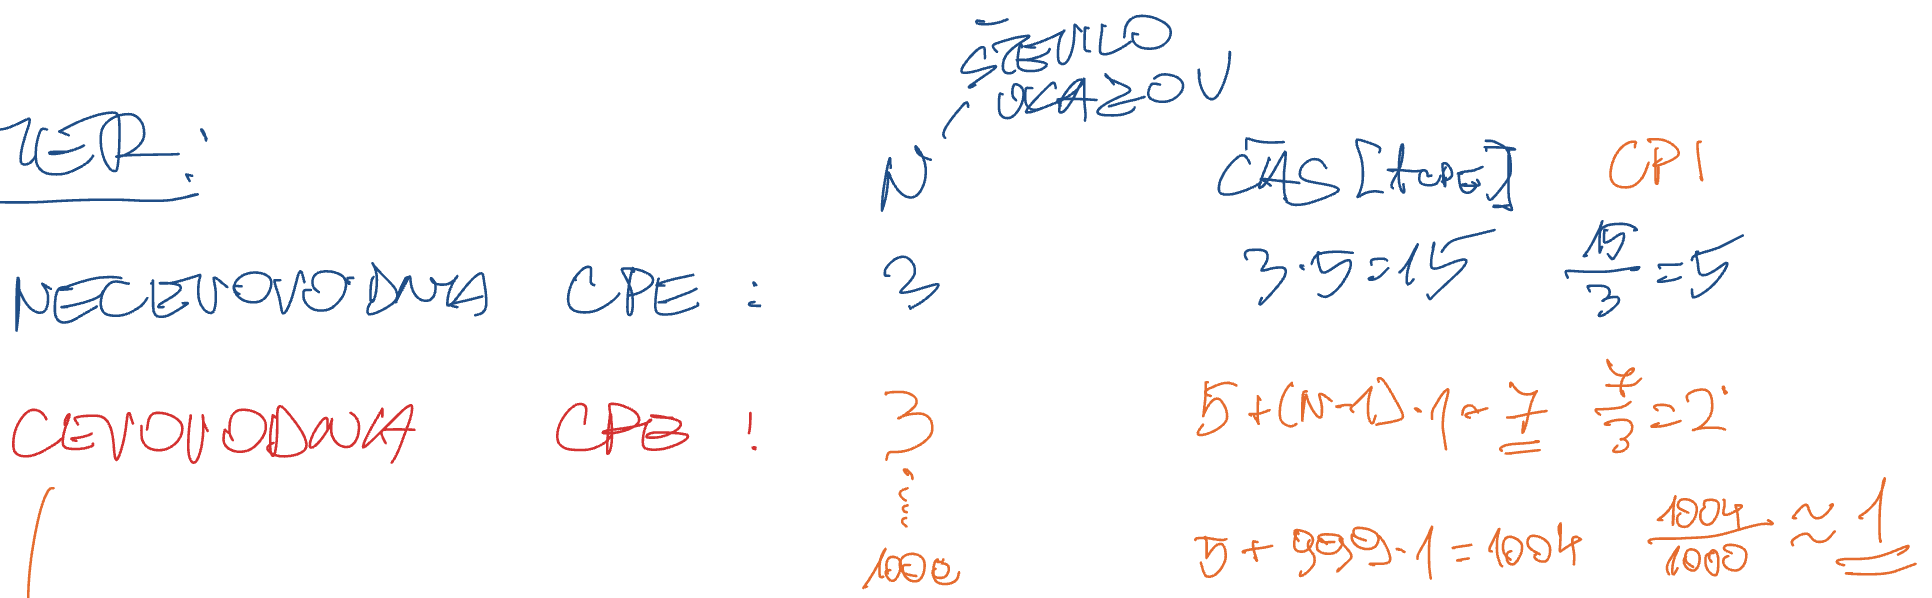 ŠTEVILO
UKAZOV
ZER:
N
ČAS [tCPE]
CPI
NECEVOVODNA CPE : 3 3·5=15 15/3=5
CEVOVODNA CPE : 3 5+(N-1)·1=7 7/3=2
1000 5+999·1=1004 1004/1000≈1